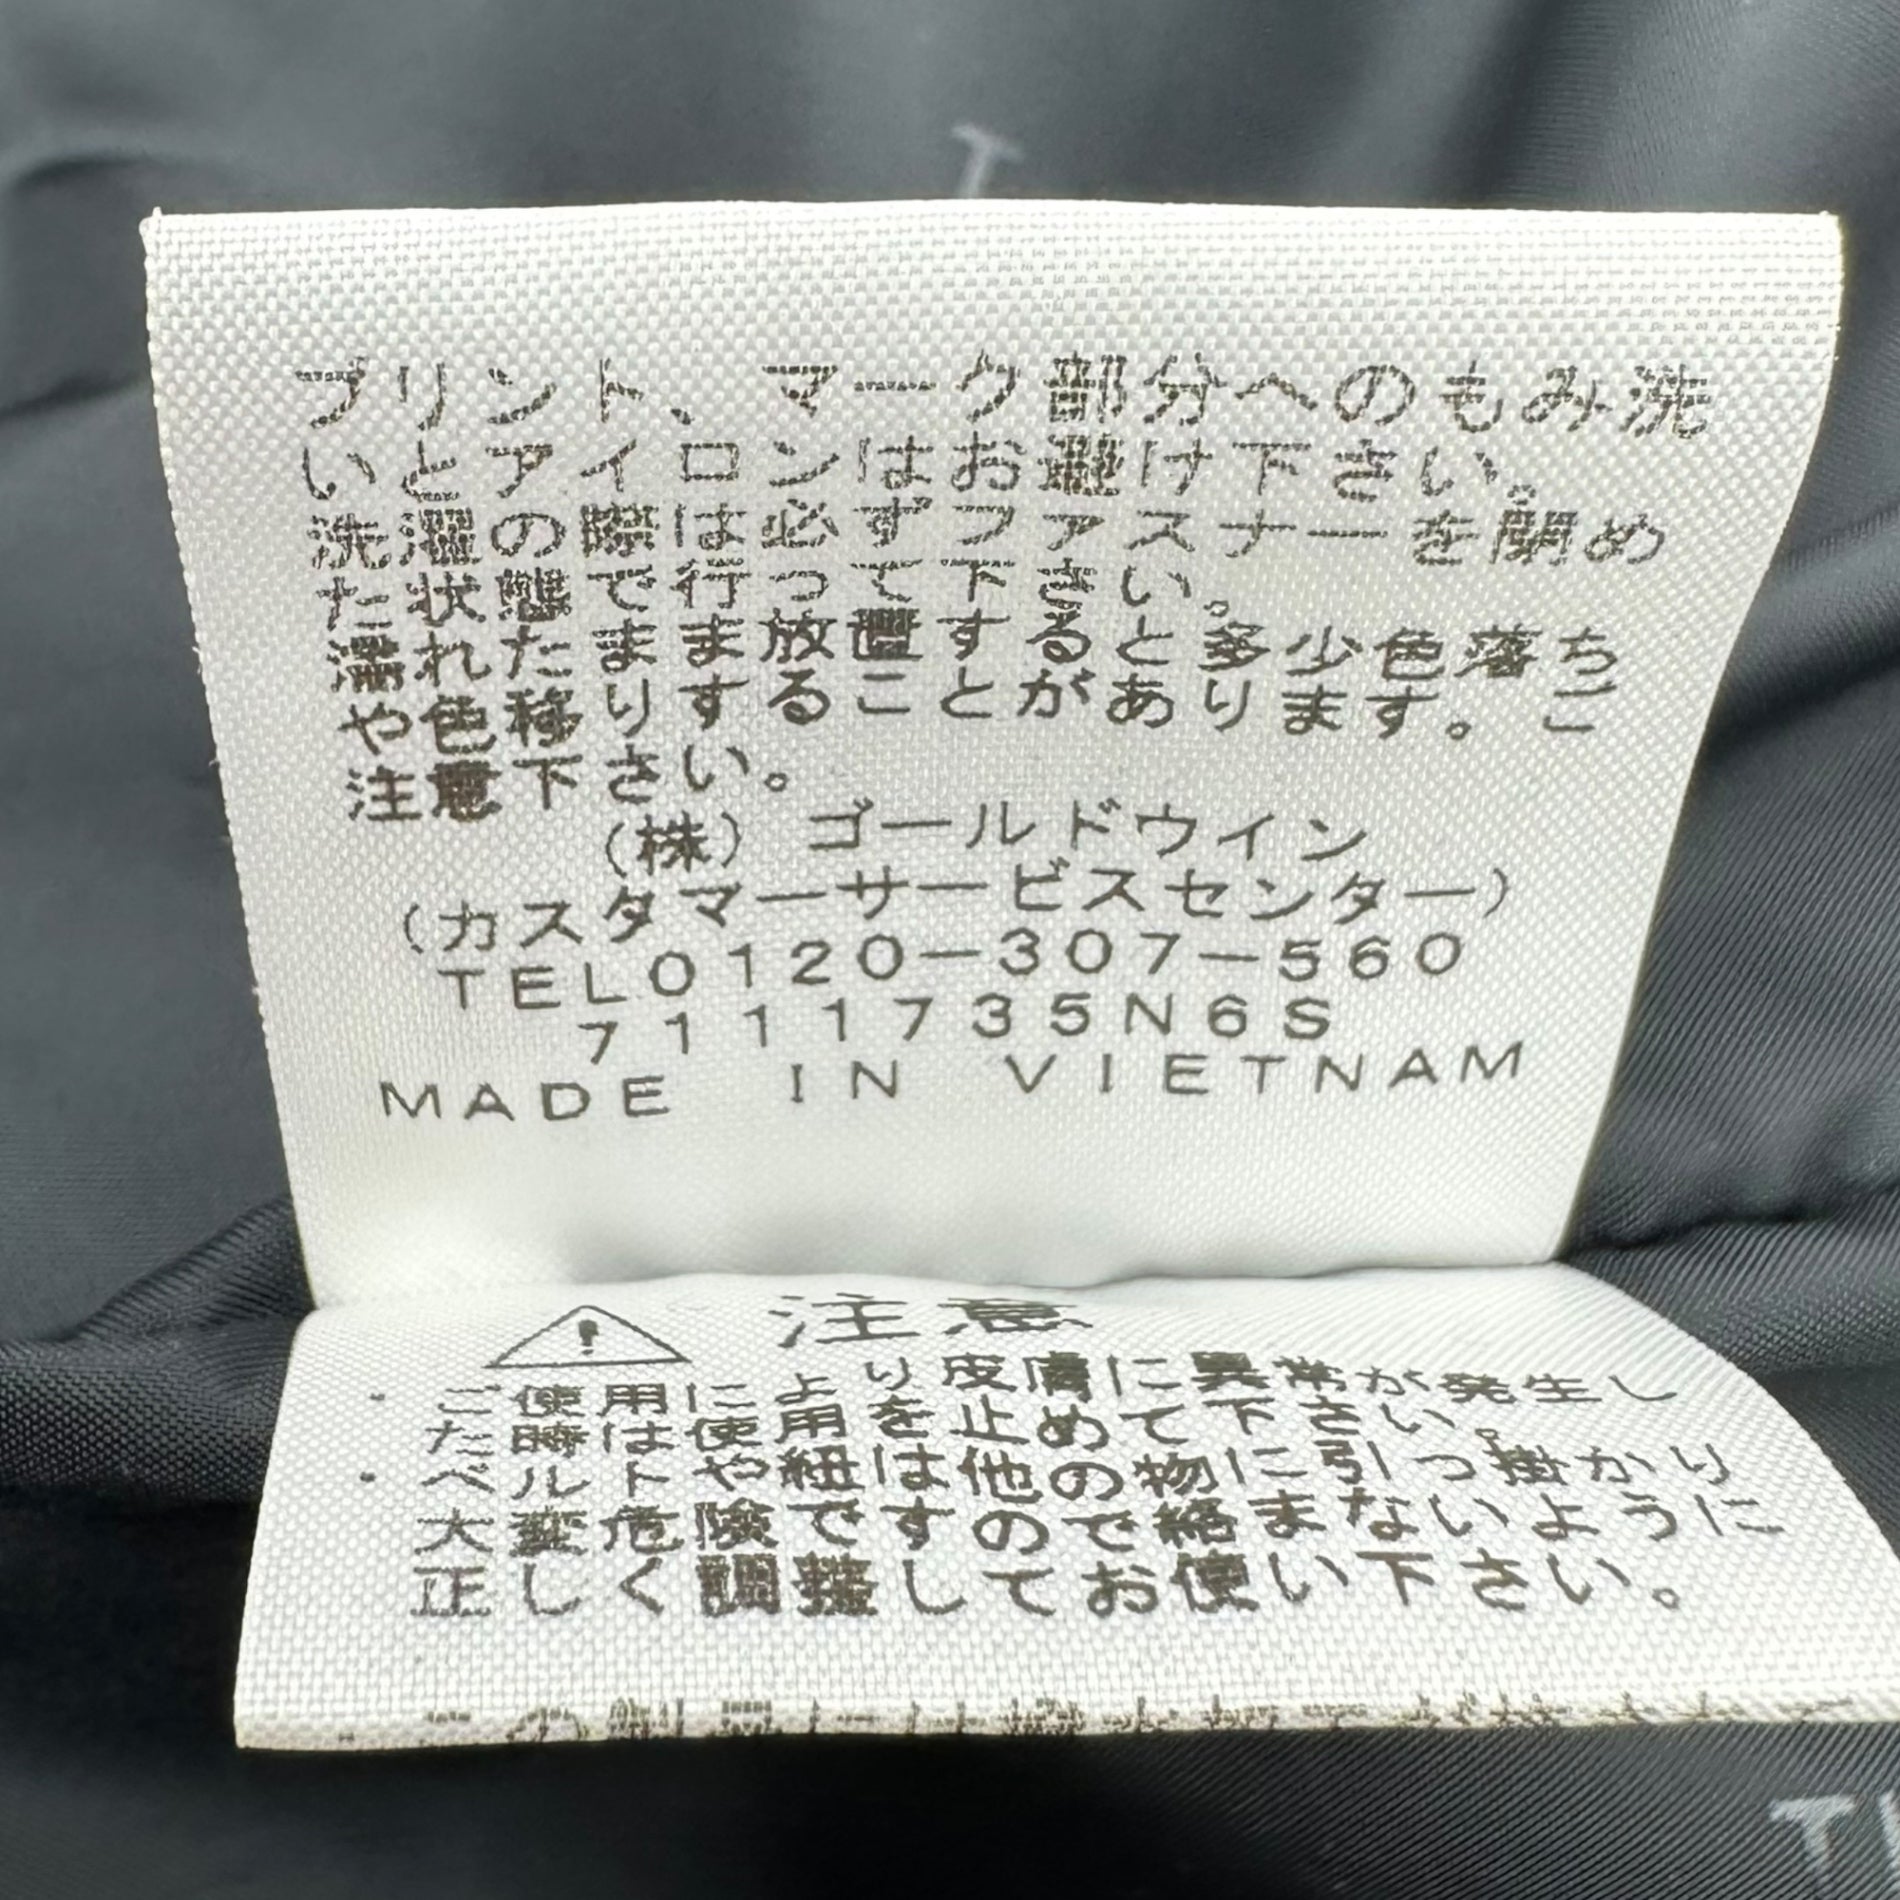 T
プリント、マーク部分へのもみ洗
いとアイロンはお避け下さい。
洗濯の際は必ずファスナーを閉め
た状態で行って下さい。
濡れたまま放置すると多少色落ち
や色移りすることがあります。ご
注意下さい。
(株) ゴールドウイン
(カスタマーサービスセンター)
TEL0120-307-560
7111735N6S
MADE IN VIETNAM
注意
・ご使用により皮膚に異常が発生し
た時は使用を止めて下さい。
・ベルトや紐は他の物に引っ掛かり
大変危険ですので絡まないように
正しく調整してお使い下さい。